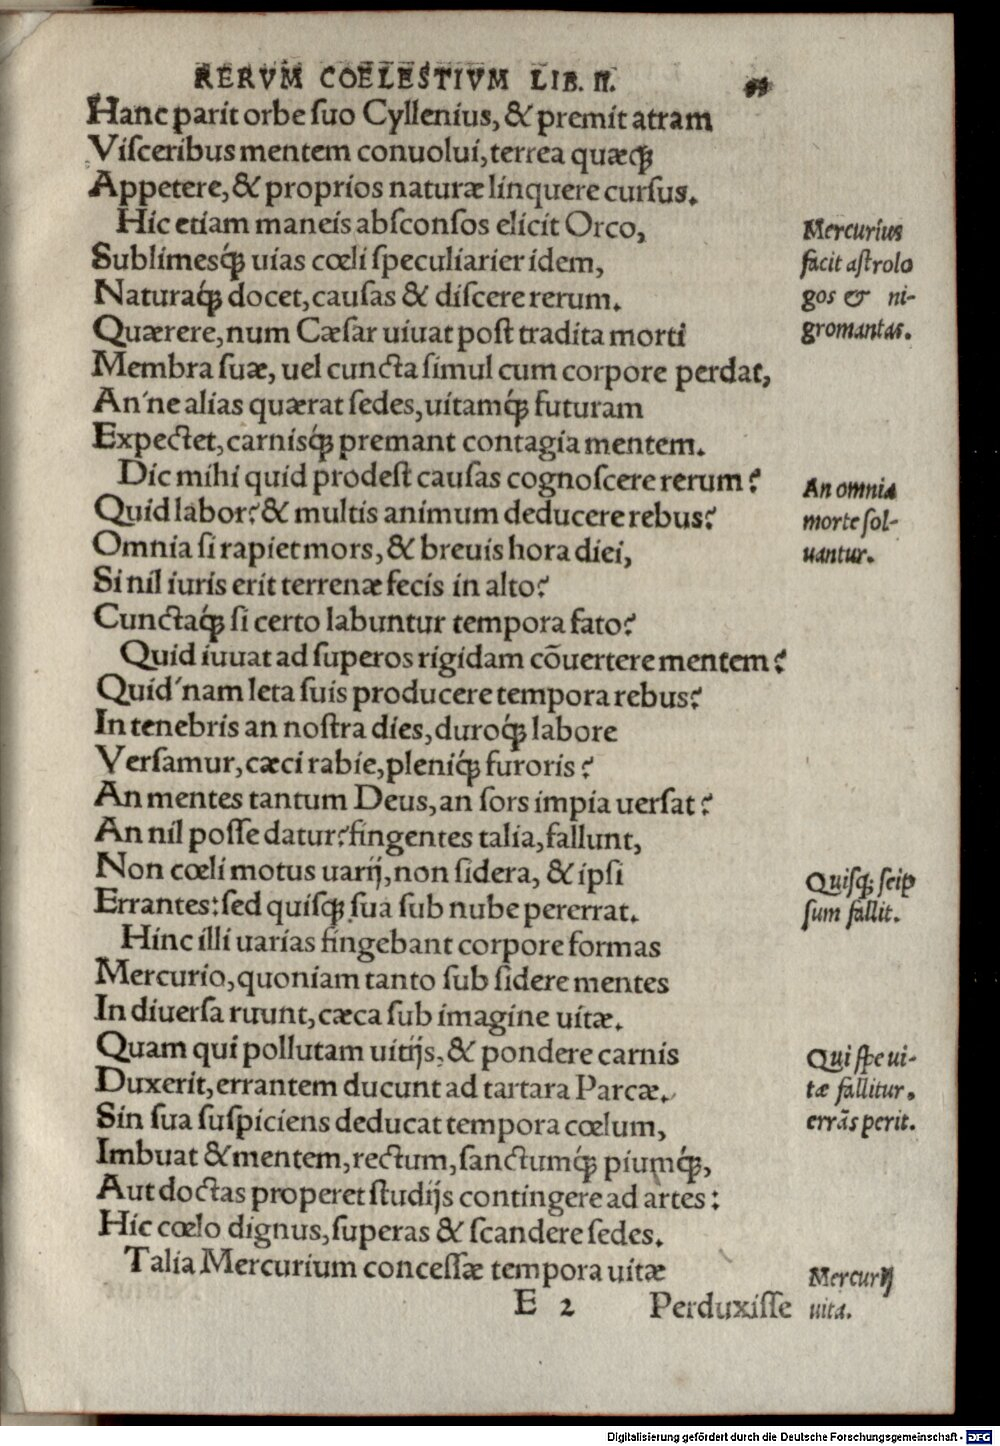 RERVM COELESTIVM LIB. II.
Hanc parit orbe ſuo Cyllenius, & premit atram
Viſceribus mentem conuolui, terrea quæq́;
Appetere, & proprios naturæ linquere curſus.
Hic etiam maneis abſconſos elicit Orco,
Sublimesq́; uias cœli ſpeculiarier idem,
Naturaq́; docet, cauſas & diſcere rerum.
Quærere, num Cæſar uiuat poſt tradita morti
Membra ſuæ, uel cuncta ſimul cum corpore perdat,
An'ne alias quærat ſedes, uitamq́; futuram
Expectet, carnisq́; premant contagia mentem.
Dic mihi quid prodeſt cauſas cognoſcere rerum?
Quid labor? & multis animum deducere rebus?
Omnia ſi rapiet mors, & breuis hora diei,
Si nil iuris erit terrenæ fecis in alto?
Cunctaq́; ſi certo labuntur tempora fato?
Quid iuuat ad ſuperos rigidam cõuertere mentem?
Quid'nam leta ſuis producere tempora rebus?
In tenebris an noſtra dies, duroq́; labore
Verſamur, cæci rabie, pleniq́; furoris?
An mentes tantum Deus, an ſors impia uerſat?
An nil poſſe datur? fingentes talia, fallunt,
Non cœli motus uarij, non ſidera, & ipſi
Errantes: ſed quiſq; ſua ſub nube pererrat.
Hinc illi uarias fingebant corpore formas
Mercurio, quoniam tanto ſub ſidere mentes
In diuerſa ruunt, cæca ſub imagine uitæ.
Quam qui pollutam uitijs, & pondere carnis
Duxerit, errantem ducunt ad tartara Parcæ.
Sin ſua ſuſpiciens deducat tempora cœlum,
Imbuat & mentem, rectum, ſanctumq́; piumq́;,
Aut doctas properet ſtudijs contingere ad artes:
Hic cœlo dignus, ſuperas & ſcandere ſedes.
Talia Mercurium conceſſæ tempora uitæ
E 2 Perduxiſſe
Mercurius
facit aſtrolo
gos & ni-
gromantas.
An omnia
morte ſol-
uantur.
Quiſq; ſeip
ſum fallit.
Qui ſpe ui-
tæ fallitur.
errãs perit.
Mercurij
uita.
Digitalisierung gefördert durch die Deutsche Forschungsgemeinschaft - DFG